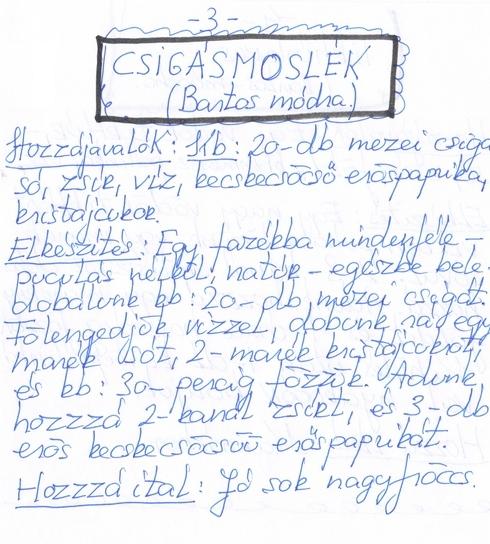 -3-
CSIGÁSMOSLÉK
(Bantas módra.)
Hozzájavalók: Kb: 20-db mezei csiga
só, zsír, víz, kecsbecsöcsö erőspaprika,
kristájcukor.
Elkészítés: Egy fazékba mindenféle-
puculás nélkűl, natúr-egészbe bele-
dobálunk kb: 20-db, mezei csigát.
Fölengedjök vízzel, dobunk rá egy
marék sót, 2-marék kristájcukrot,
és kb: 30-percig főzzük. Adunk
hozzzá 2-kanál zsírt, és 3-db
erős kecsbecsöcsöő erőspaprikát.
Hozzzá ital: Jó sok nagyfröccs.